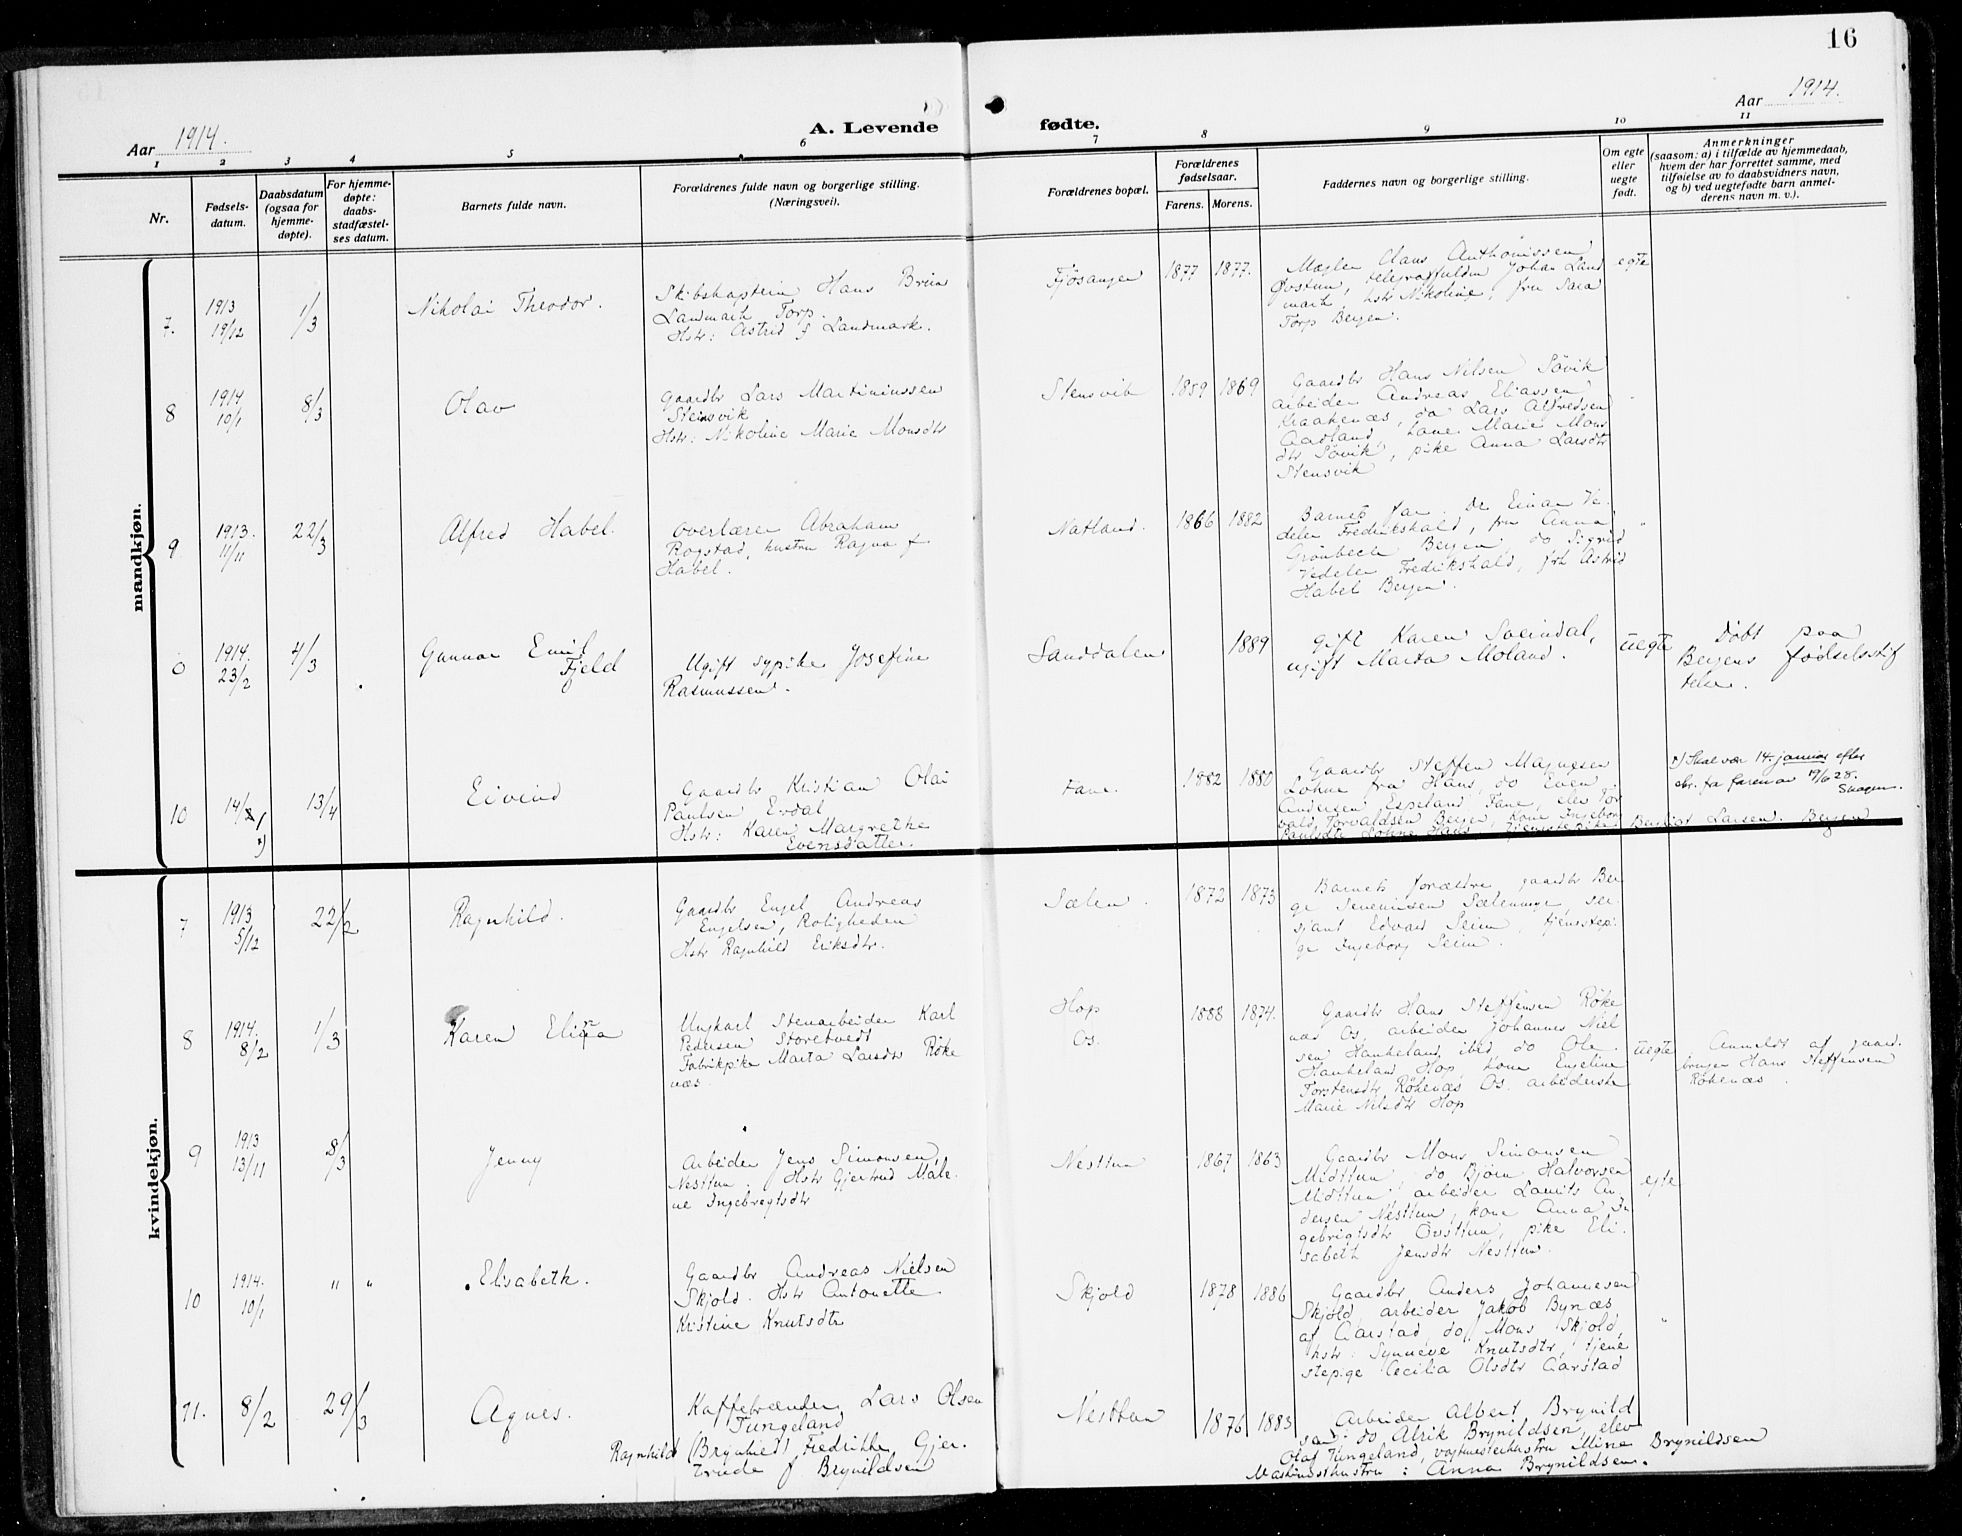 16
Aar 1914.
A. Levende fødte.
Aar 1914.
1 2 3 4 5 6 7 8 9 10 11
Nr.
Fødsels-
datum.
Daabsdatum
(ogsaa for
hjemme-
døpte).
For hjemme-
døpte:
daabs-
stadfæstel-
ses datum.
Barnets fulde navn.
Forældrenes fulde navn og borgerlige stilling.
(Næringsvei).
Forældrenes bopæl.
Forældrenes
fødselsaar.
Farens. Morens.
Faddernes navn og borgerlige stilling.
Om egte
eller
uegte
født.
Anmerkninger
(saasom: a) i tilfælde av hjemmedaab,
hvem der har forrettet samme, med
tilføielse av to daabsvidners navn,
og b) ved uegtefødte barn anmel-
derens navn m. v.).
mandkjøn.
7.
1913
19/12
1/3
Nikolai Theodor.
Skibskaptein Hans Brun
Landmark Torp.
Hstr: Astrid f Landmark.
Fjøsanger
1877 1877.
Mægler Claus Anthonissen
Øvstun, telegraffuldm Johan Land
mark, hstr Nikoline, fru Sara
Torp Bergen.
egte
8
1914
10/1
8/3
Olav
Gaardbr Lars Martiniussen
Steinsvik
Hstr: Nikoline Marie Monsdtr
Stensvik
1859 1869
Gaardbr Hans Nilsen Søvik
arbeider Andreas Eliassen
Kraakenæs, do Lars Alfredsen
Aadland, kone Marie Mons
dtr Søvik, pike Anna Larsdtr
Stensvik
"
9
1913.
11/11
22/3
Alfred Habel.
Overlærer Abraham
Rogstad, hustru Ragna f
Habel.
Natland.
1866 1882
Barnets far. Dr Einar Ve-
deler Fredrikshald, fru Anna
Grønbech Bergen, do Sigrid
Vedeler Fredrikshald, frk Astrid
Habel Bergen.
"
0
1914.
23/2
4/3
Gunnar Emil
Fjeld
Ugift sypike Josefine
Rasmussen.
Sanddalen
1889
gift Karen
ugift Marta Moland.
uegte
Døbt paa
Bergens fødselsstif
telse.
10
14/2 1
x)
13/4
Eivind
Gaardbr Kristian Olai
Paulsen Eirdal
Hstr: Karen Margrethe
Evensdatter.
Fane.
1882 1880
Gaardbr Steffen Magnesen
Lohne fra Hans, do Even
Andersen Espeland, Fane, elev Tor
vald Torvaldsen Bergen, kone Ingeborg
Paulsdtr Lohne Hans, tjenestepike Bergit Larsen. Bergen
x) Skal være 14. januar efter
skr. fra faren av 19/6 28.
kvindekjøn.
7
1913
5/12
22/2
Ragnhild.
Gaardbr Engel Andreas
Engelsen, Roligheden
Hstr Ragnhild Eriksdtr.
Sælen.
1872 1873
Barnets forældre, gaardbr Ber
ge Severinsen Sælenunge, ser
sjant Edvard Seim, tjenestepi
ge Ingeborg Seim.
8
1914.
8/2
1/3
Karen Elina
Ungkarl Stenarbeider Karl
Pedersen Storetvedt
Fabrikpike Marta Larsdtr Røke
næs.
Hop
Os.
1888 1874.
Gaardbr Hans Steffensen Røke
næs Os, arbeider Johannes Niel
sen Haukeland ibid do Ole
Haukeland Hop, kone Engeline
Torstensdtr, Røkenæs Os. arbeiderske
Marie Nilsdtr Hop
uegte
Anmeldt af gaard-
bruger Hans Steffensen
Røkenæs.
9
1913
13/11
8/3
Jenny
Arbeider Jens Simonsen,
Nesttun. Hstr Gjertrud Male-
ne Ingebregtsdtr
Nesttun
1867 1863
Gaardbr Mons Simonsen
Midttun, do Bjørn Halvorsen
Midttun, arbeider Laurits An
dersen Nesttun, kone Anna In
gebrigtsdtr Øvsttun, pike Eli-
sabeth Jensdtr Nesttun.
egte
10
1914.
10/1
" "
Elisabeth.
Gaardbr Andreas Nielsen
Skjold. Hstr Antonette
Kristine Knutsdtr
Skjold
1878 1886
Gaardbr Anders Johannesen
Skjold, arbeider Jakob Bynæs
af Aarstad, do Mons Skjold,
hstr: Synneve Knutsdtr, tjene
stepige Cecilia Olsdtr Aarstad
"
11.
8/2
29/3
Agnes.
Kaffebrænder Lars Olsen
Tungeland
Ragnhild (Brynhild) Fredrikke Gjer-
trude f Brynildsen
Nesttun
1876 1883
Arbeider Albert Brynild
sen, do Alrik Brynildsen, elev
Olaf Tungeland, vogtmesterhustru Mine Brynildsen
Maskinisthustru: Anna Brynildsen.